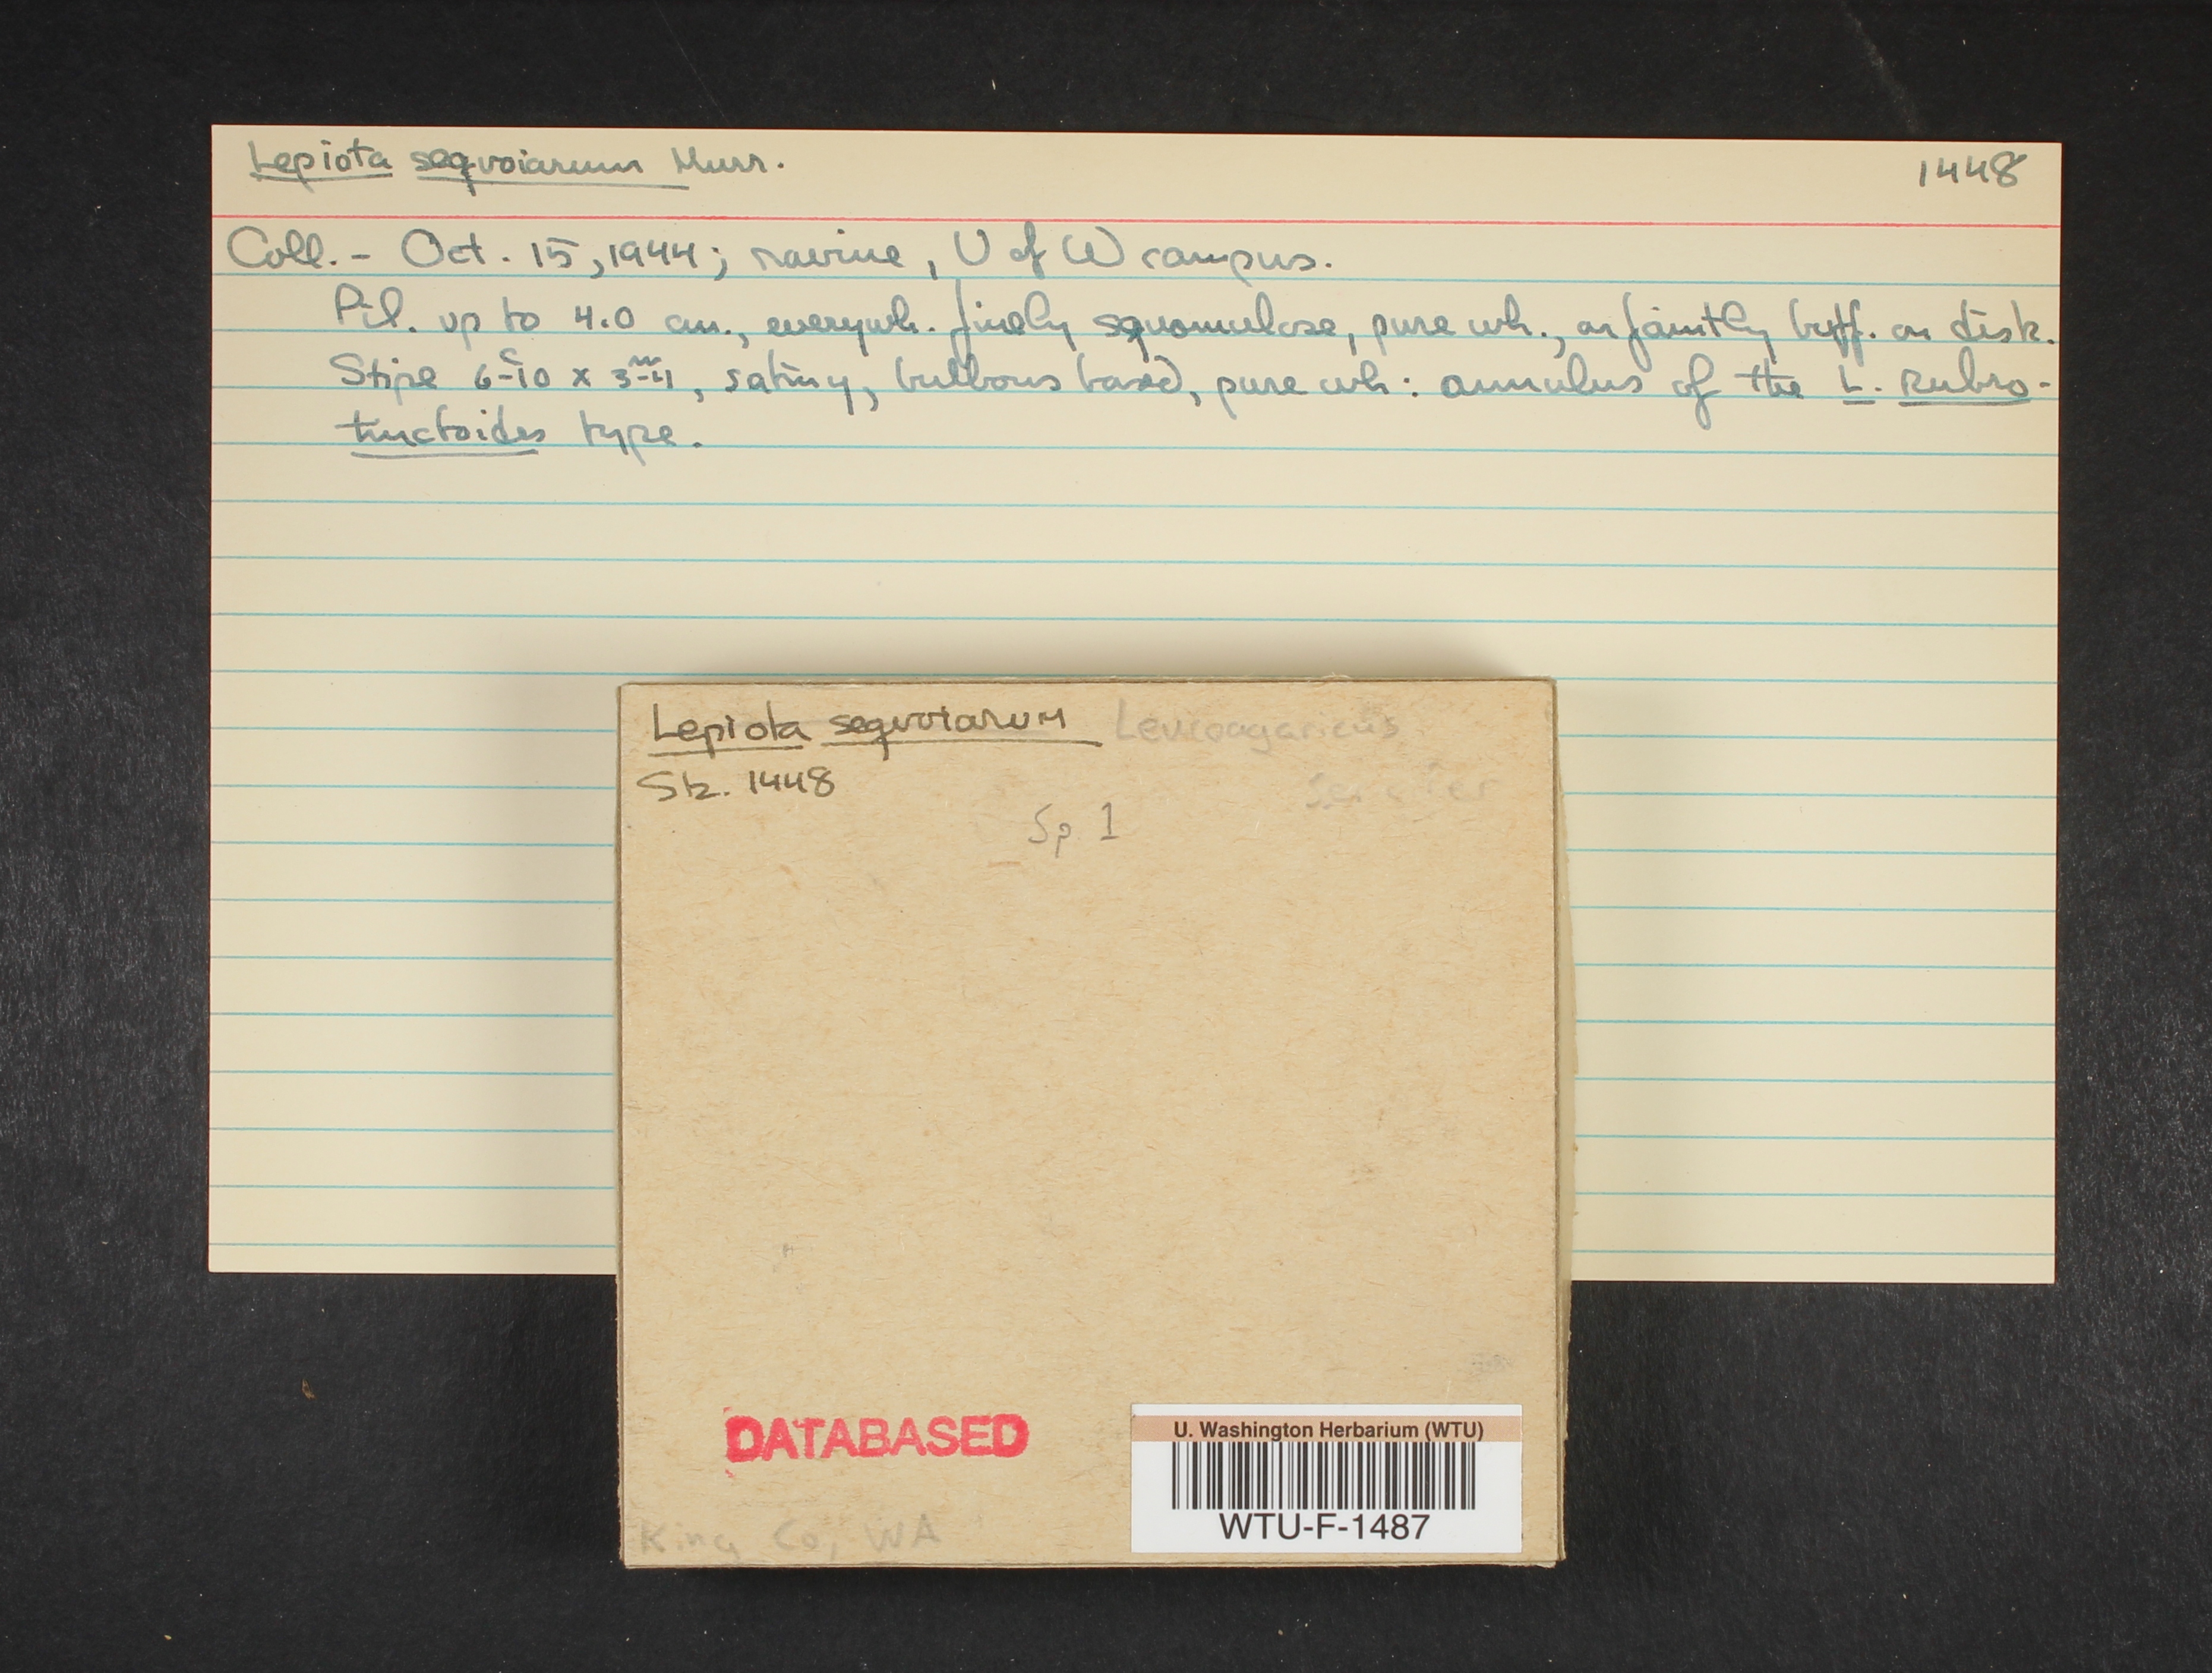 Lepiota sequoiarum Murr. 1448
Coll. - Oct. 15, 1944; ravine, U of W campus.
Pil. up to 4.0 cm., everywh. finely squamulose, pure wh., or faintly buff. on disk.
Stipe 6-10 c x 3-4 m, satiny, bulbous based, pure wh: annulus of the L. rubro-
tinctoides type.
Lepiota sequoiarum Leucoagaricus
Stz. 1448
Sp. 1
DATABASED
U. Washington Herbarium (WTU)
WTU-F-1487
King Co, WA